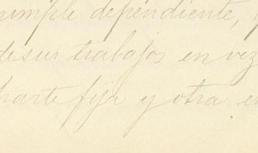 simple dependiente,
de sus trabajos en vez
parte fija y otra en